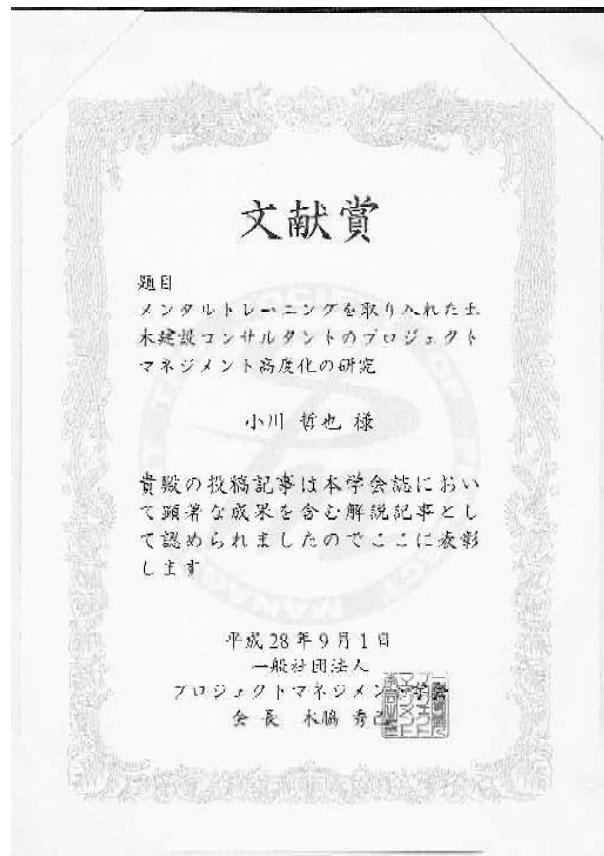 文献賞
題目
メンタルトレーニングを取り入れた土
木建設コンサルタントのプロジェクト
マネジメント高度化の研究
小川 哲也 様
貴殿の投稿記事は本学会誌におい
て顕著な成果を含む解説記事とし
て認められましたのでここに表彰
します
平成28年9月1日
一般社団法人
プロジェクトマネジメント学会
会長 木脇 秀己